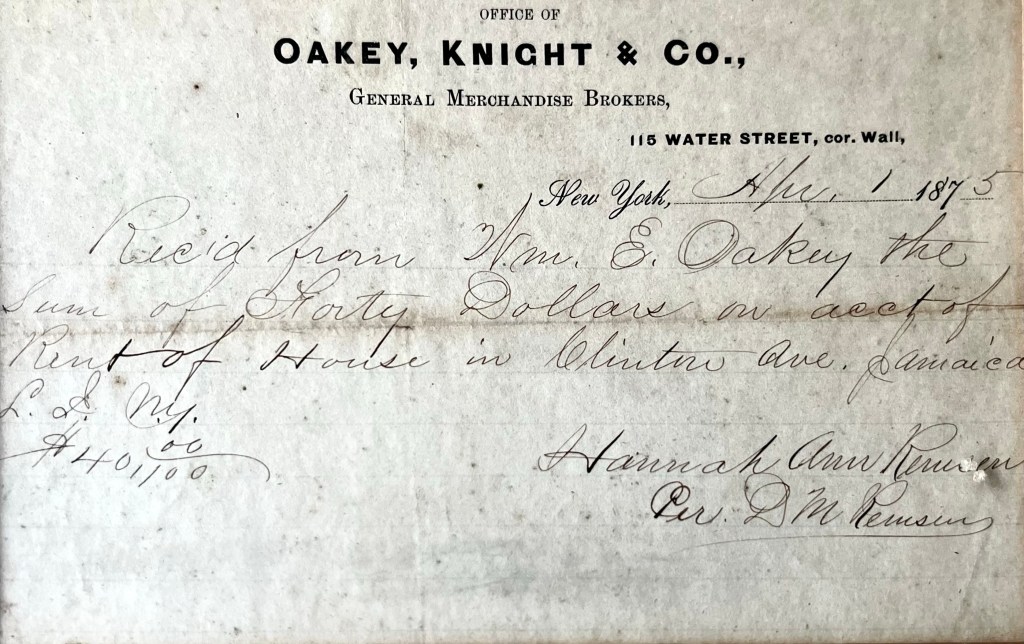 OFFICE OF
OAKEY, KNIGHT & CO.,
GENERAL MERCHANDISE BROKERS,
115 WATER STREET, cor. Wall,
New York, Apr. 1 1875
Rec'd from Wm. E. Oakey the
Sum of Forty Dollars on acct of
Rent of House in Clinton Ave. Jamaica
L. I. N.Y.
$40 00/100
Hannah Ann Remsen
Per. D M Remsen